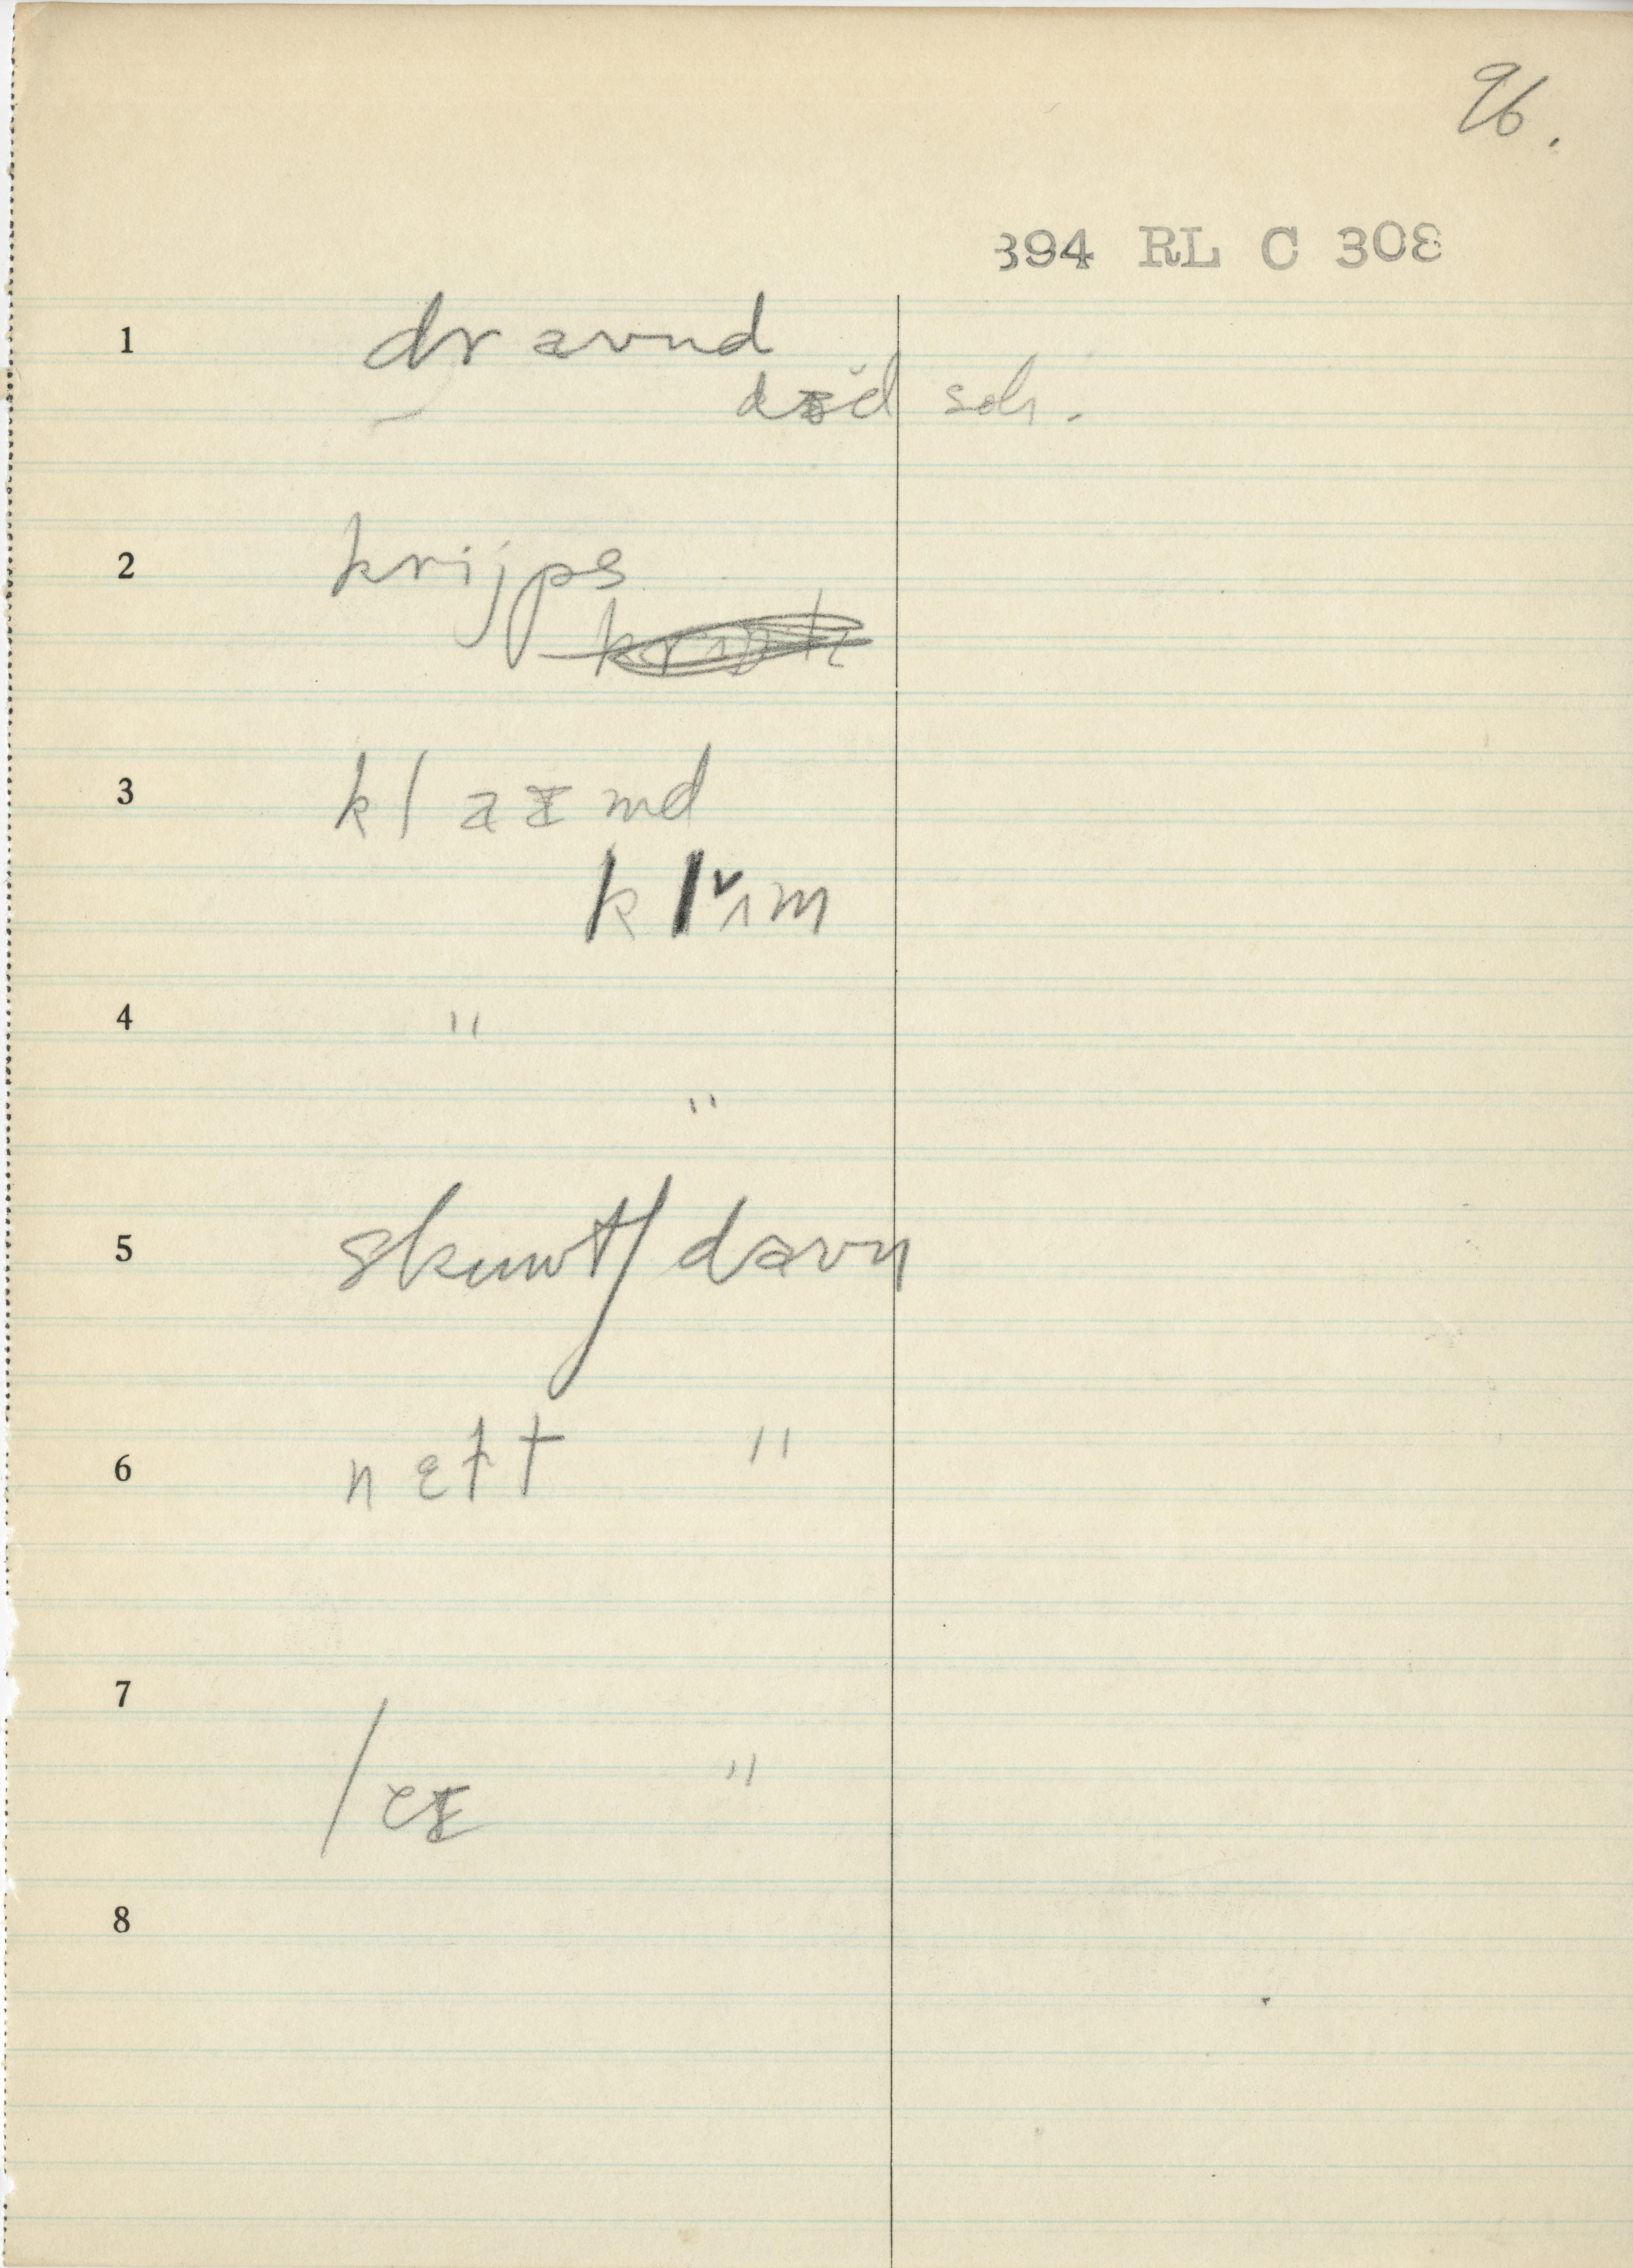 96.
394 RL C 308
1 dr aʊnd
dɪd sėh.
2 krijps
3 kl aɪmd
k lʌ̌ɪm
4 "
"
5 skuwtʃ daʊn
6 nɛɫt "
7 /eɪ "
8